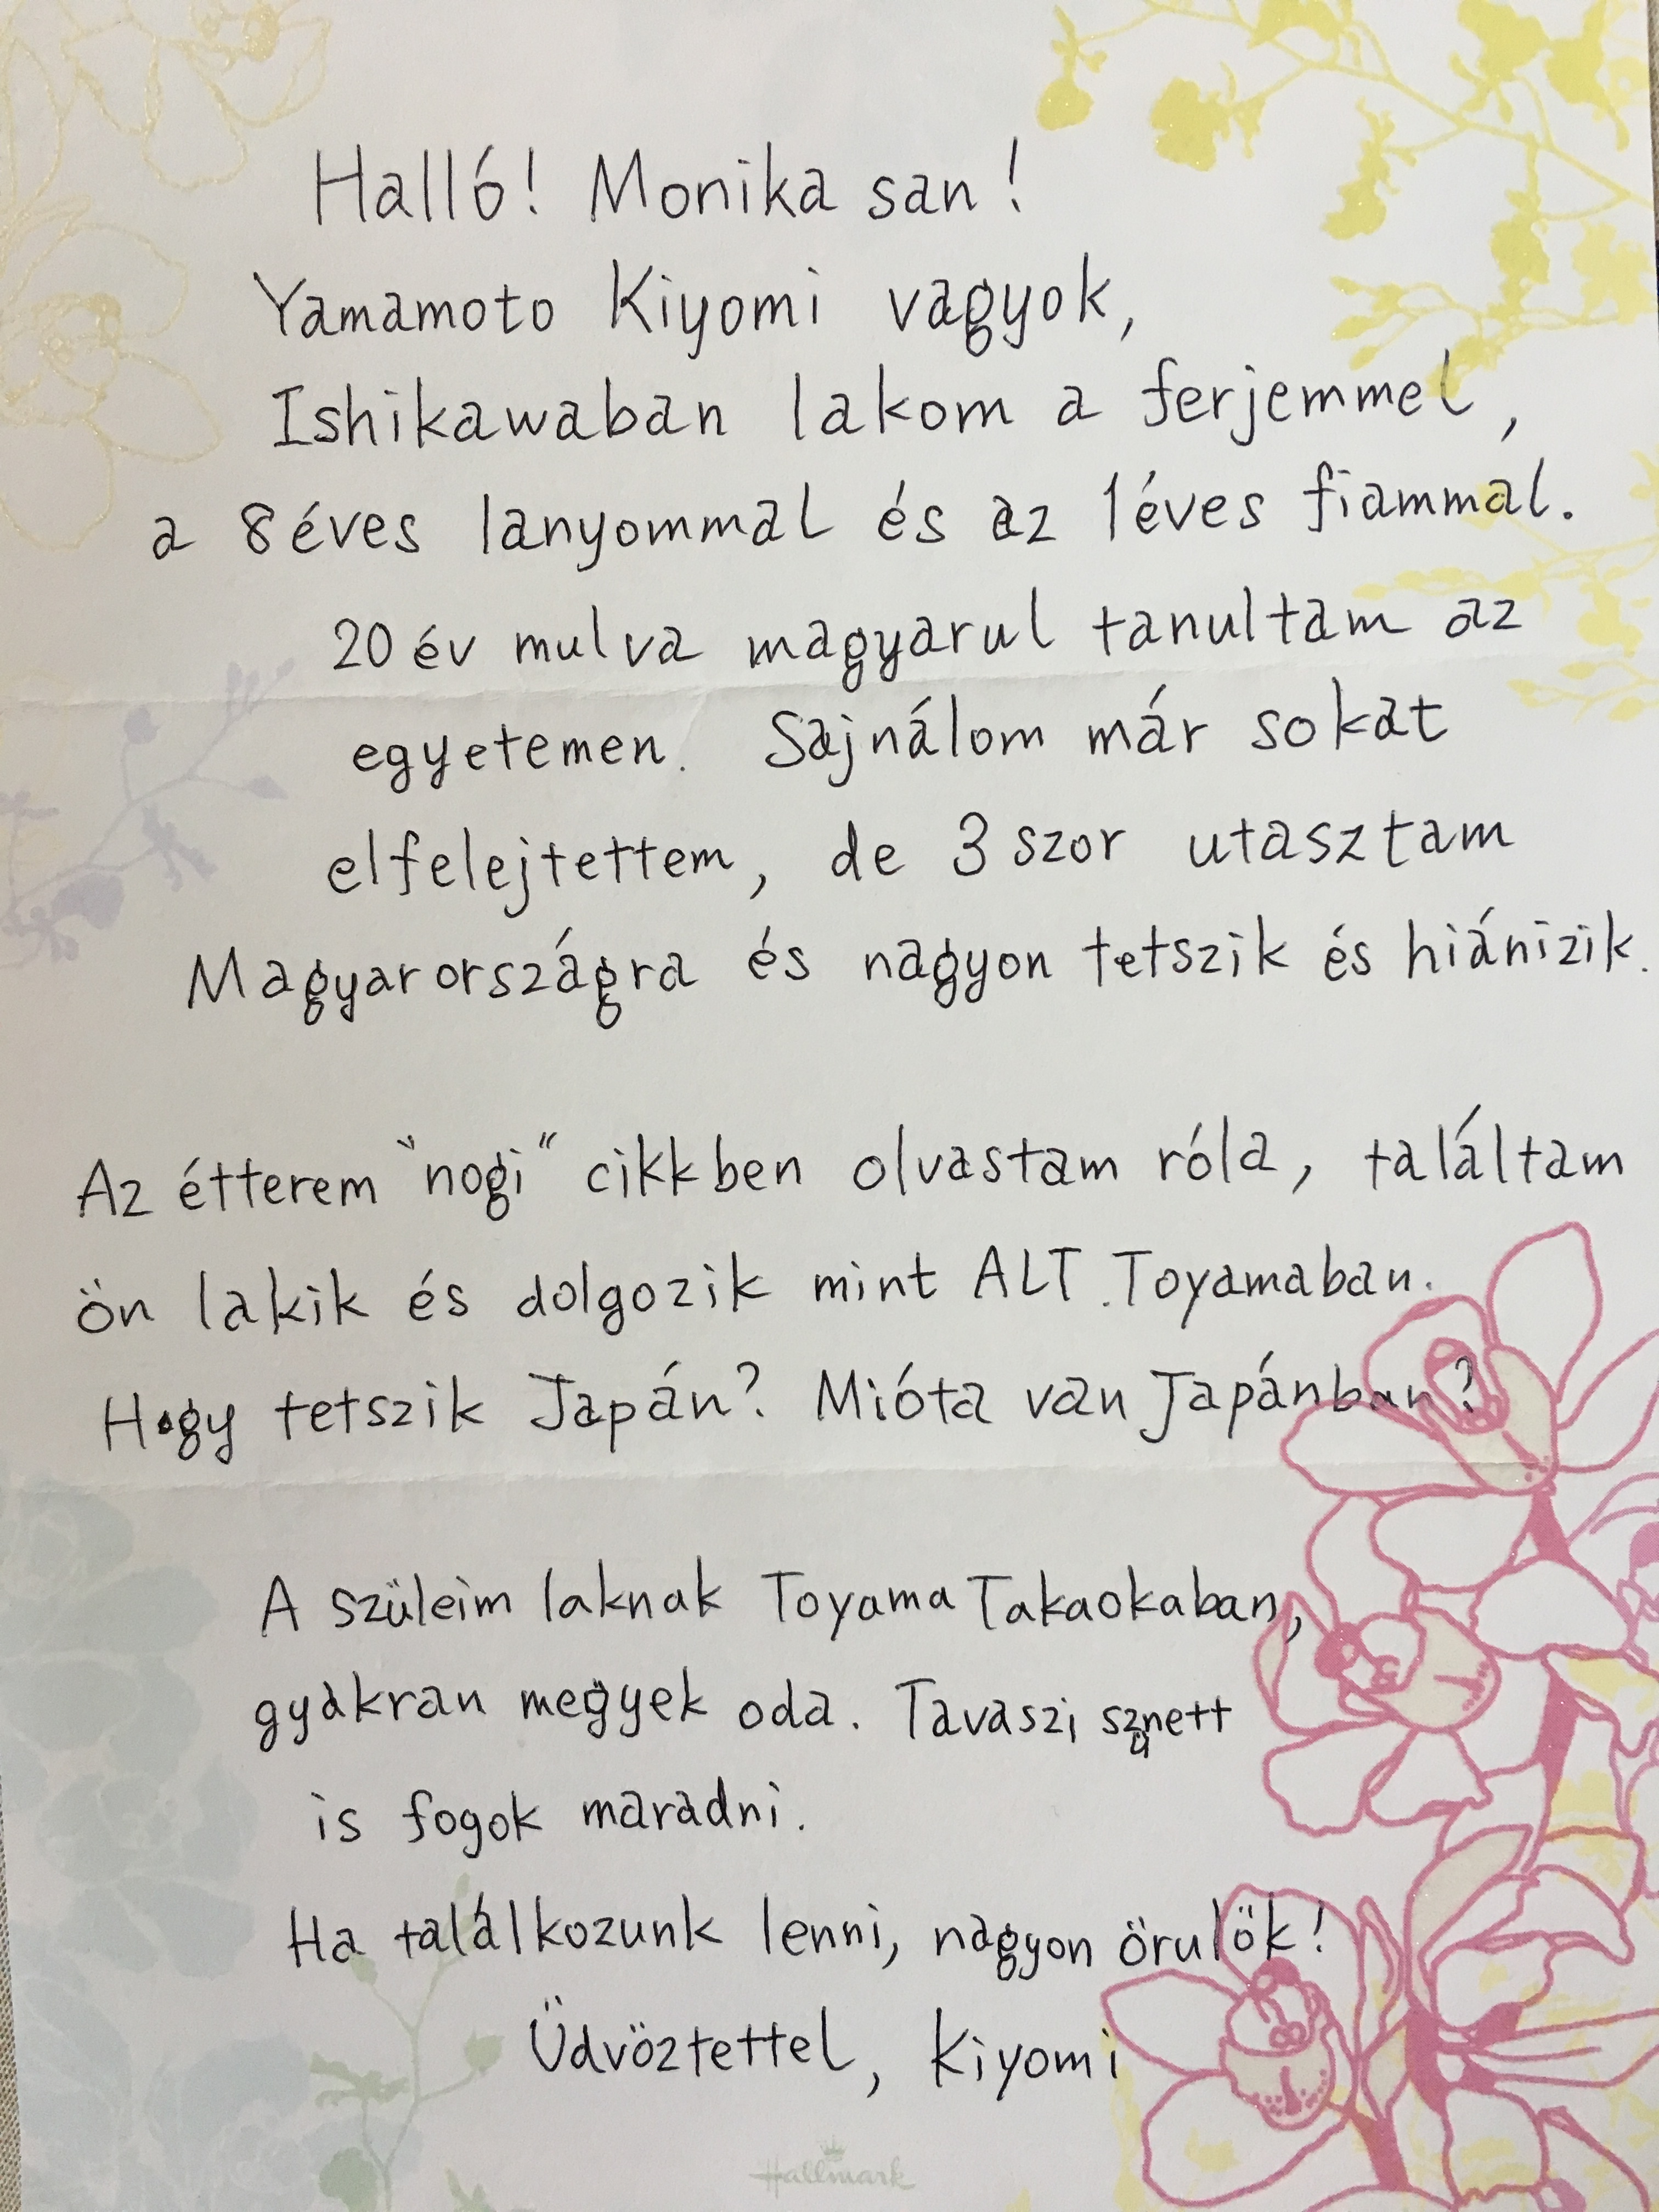 Halló! Monika san!
Yamamoto Kiyomi vagyok,
Ishikawaban lakom a ferjemmel,
a 8éves lanyommal és az 1éves fiammal.
20 év mulva magyarul tanultam az
egyetemen. Sajnálom már sokat
elfelejtettem, de 3 szor utasztam
Magyarországra és nagyon tetszik és hiánizik.
Az étterem "nogi" cikkben olvastam róla, találtam
ön lakik és dolgozik mint ALT Toyamaban.
Hogy tetszik Japán? Mióta van Japánban?
A szüleim laknak Toyama Takaokaban,
gyakran megyek oda. Tavaszi szünett
is fogok maradni.
Ha találkozunk lenni, nagyon örulök!
Üdvöztettel, Kiyomi
Hallmark